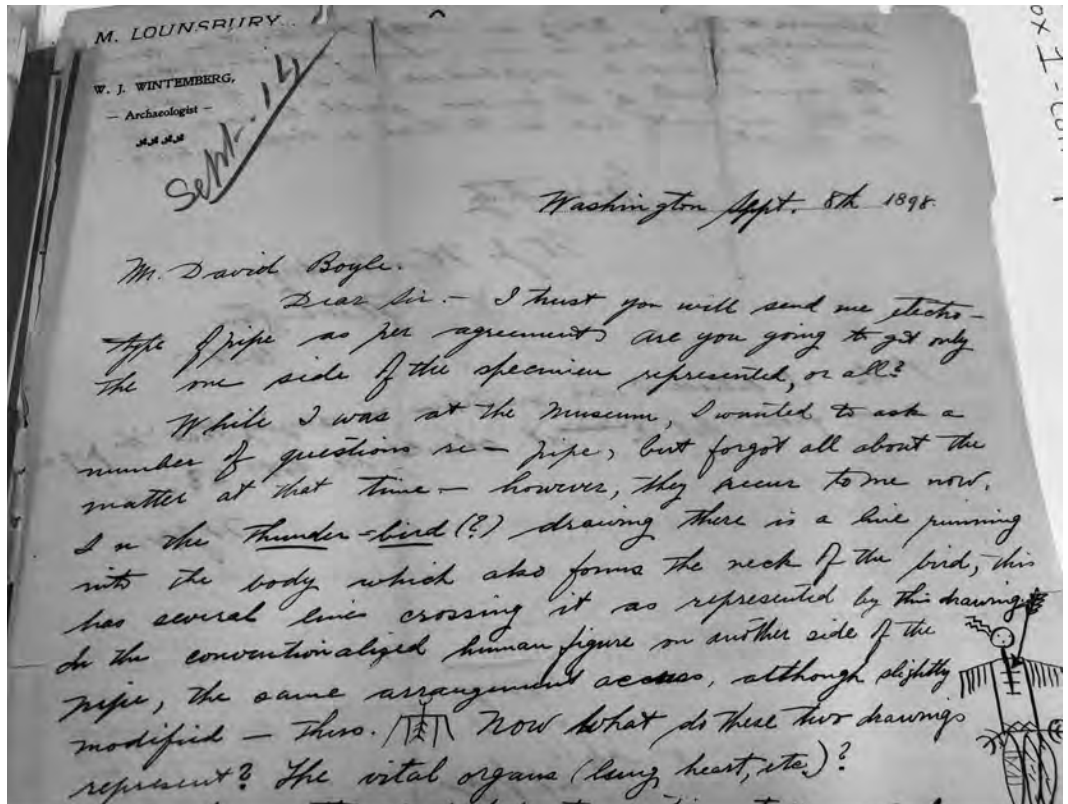 M. LOUNSBURY
W. J. WINTEMBERG,
— Archaeologist —
Sept. 14
Washington Sept. 8th 1898.
Mr. David Boyle.
Dear Sir. — I trust you will send me electro-
type of pipe as per agreement, are you going to get only
the one side of the specimen represented, or all?
While I was at the Museum, I wanted to ask a
number of questions re — pipe, but forgot all about the
matter at that time — however, they occur to me now.
In the thunder-bird (?) drawing there is a line running
into the body which also forms the neck of the bird, this
has several lines crossing it as represented by this drawing
In the conventionalized human figure on another side of the
pipe, the same arrangement occurs, although slightly
modified — thus. Now what do these two drawings
represent? The vital organs (lung, heart, etc.)?
ox 1 -